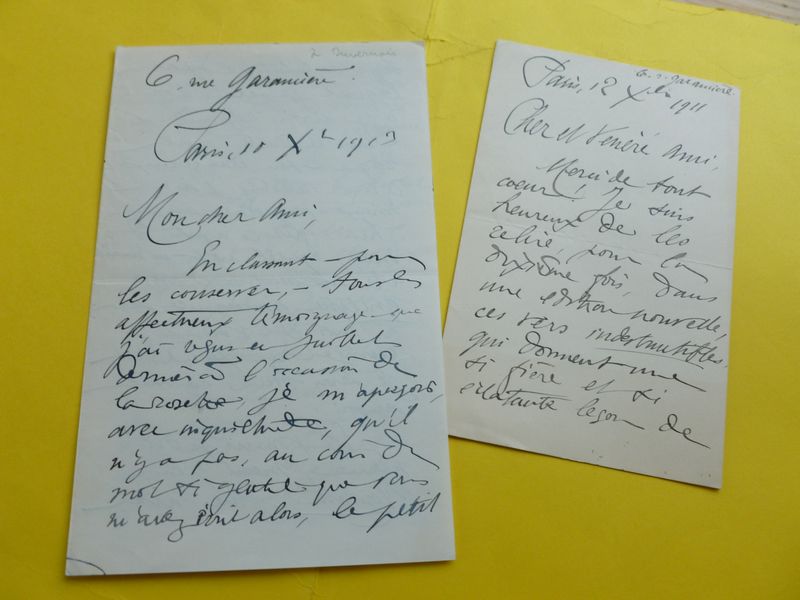 6. rue Garancière.
Paris, 10 Xb 1913
Mon cher Ami,
En classant – pour
les conserver, – tous les
affectueux témoignages que
j'ai reçus en Juillet
dernier à l'occasion de
la rosette, je m'aperçois,
avec inquiétude, qu'il
n'y a pas, au coin du
mot si gentil que vous
m'avez écrit alors, le petit
6. r. Garancière.
Paris, 12 Xbre 1911
Cher et Vénéré ami,
Merci de tout
coeur! Je suis
heureux de les
relire, pour la
dixième fois, dans
une édition nouvelle,
ces vers indestructibles
qui donnent une
si fière et si
éclatante leçon de